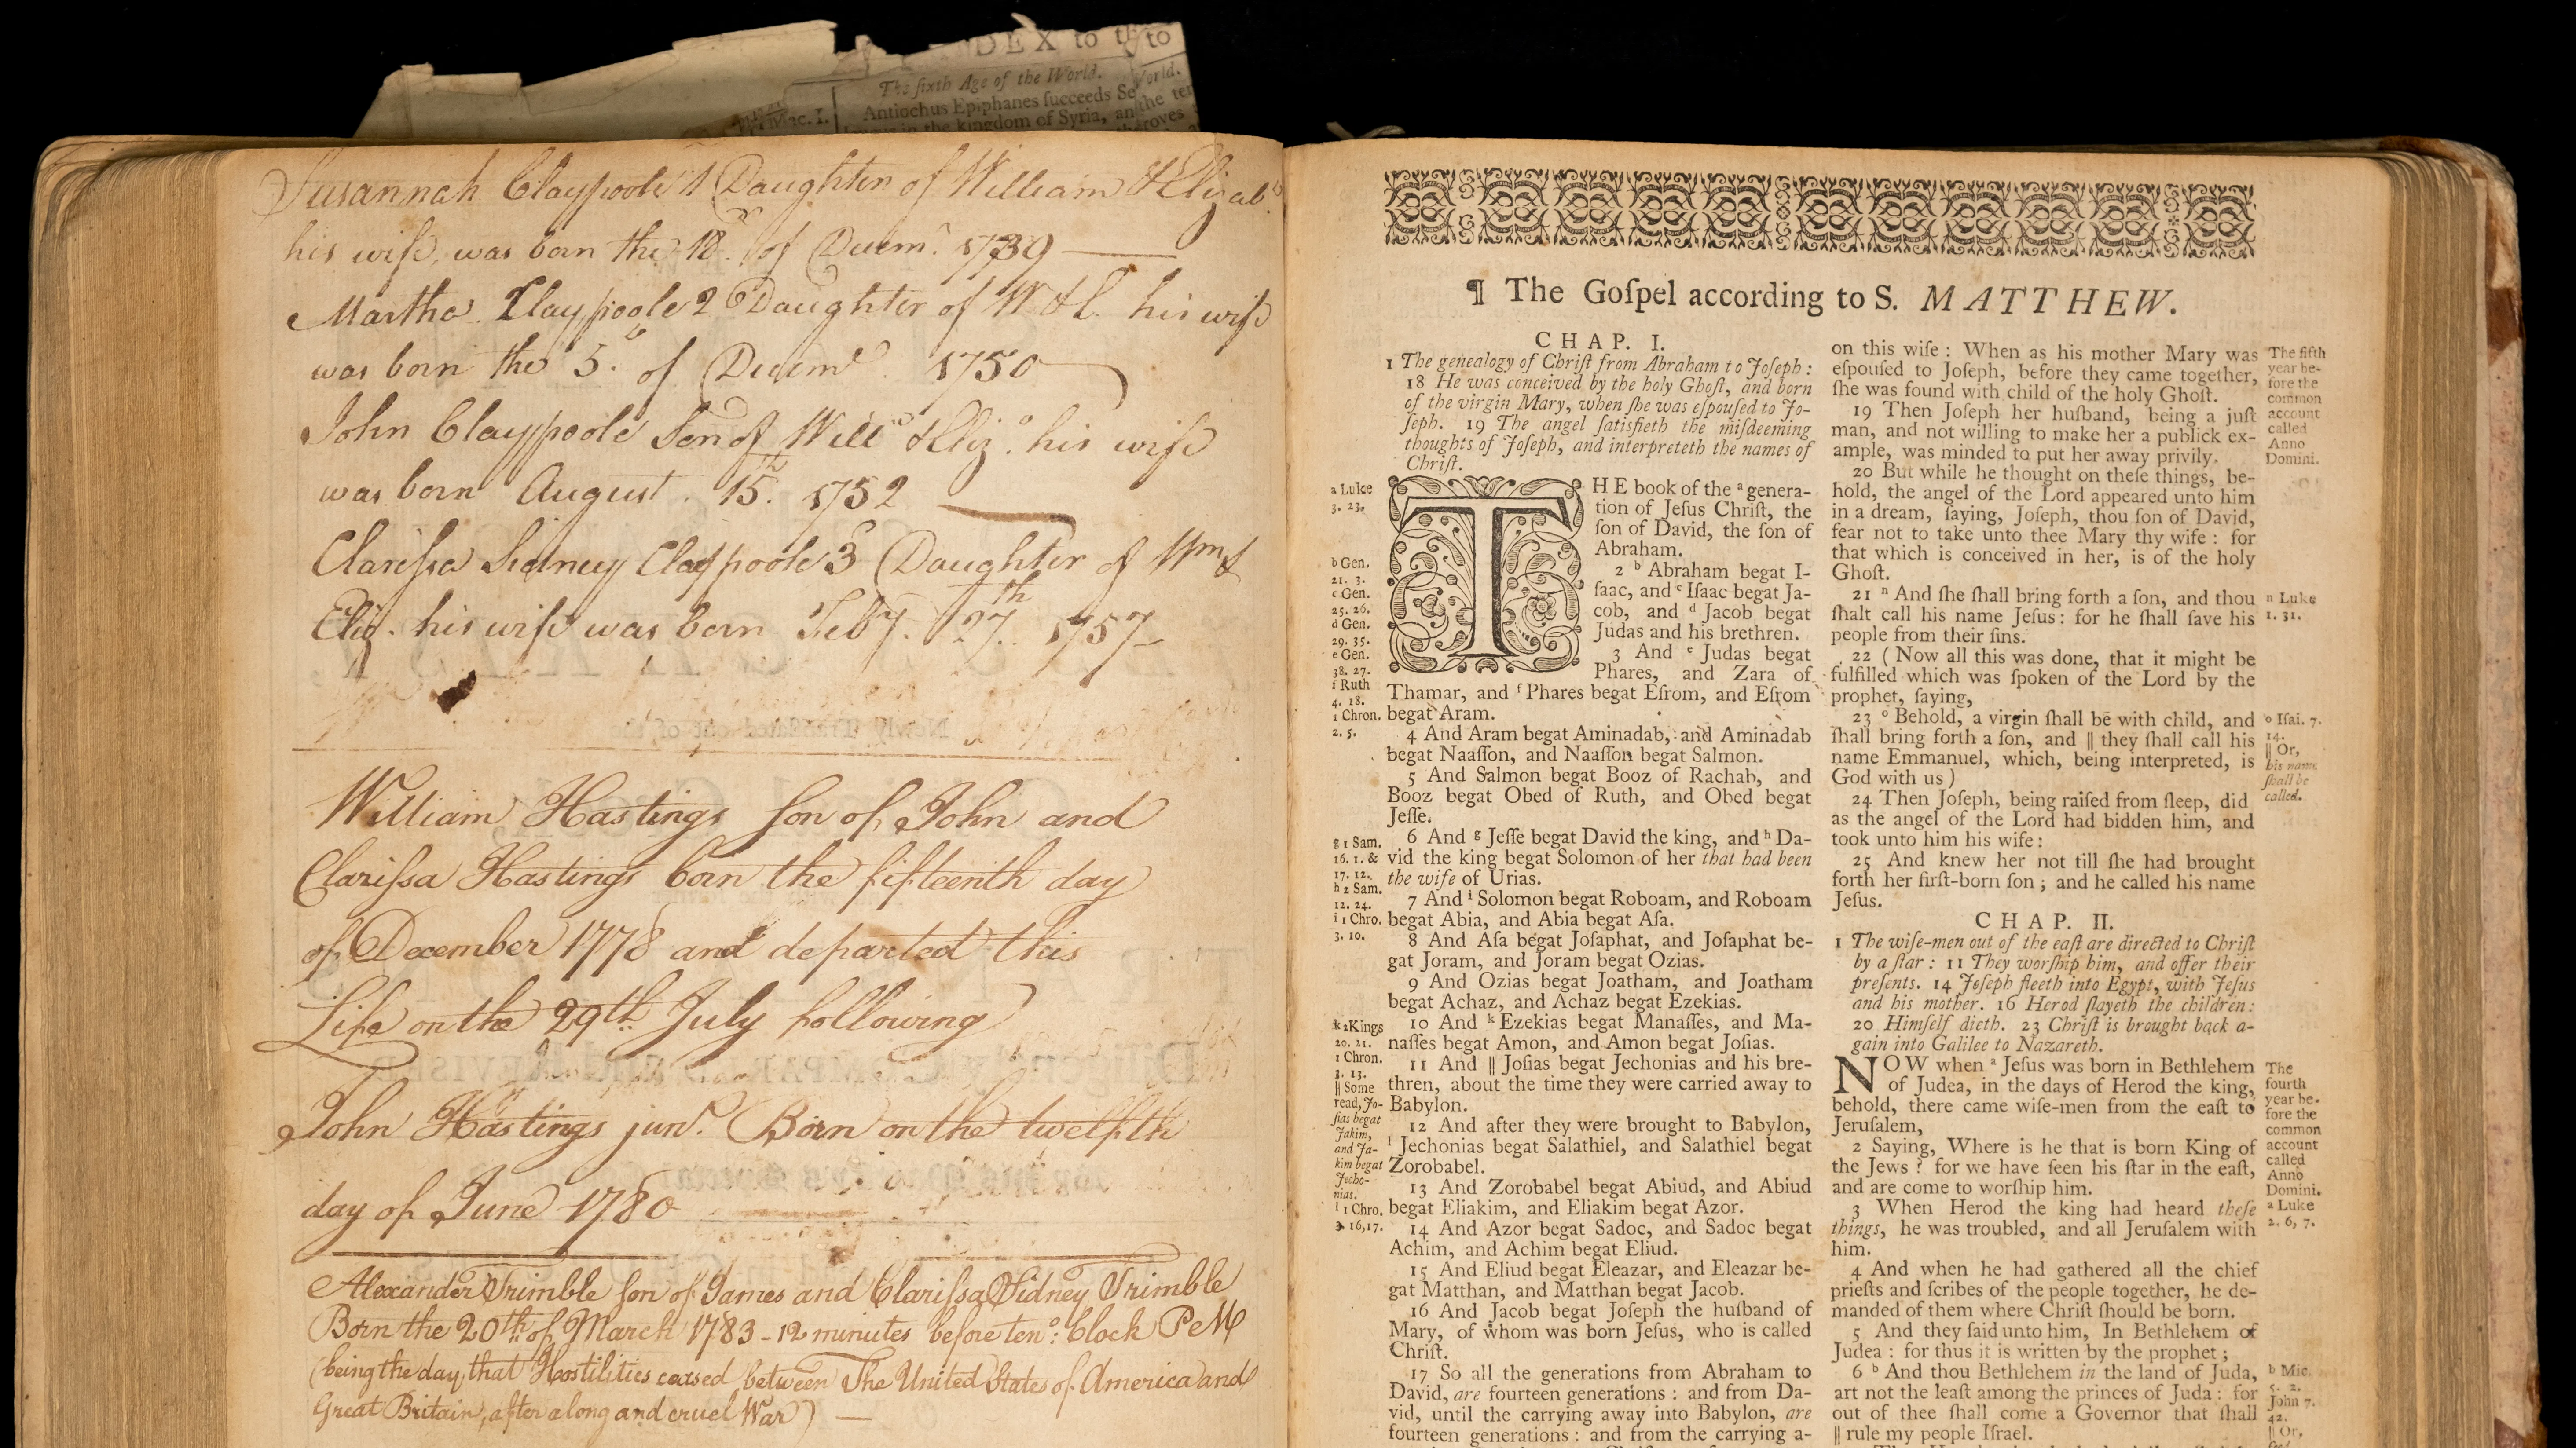 INDEX to th to
The ſixth Age of the World. World.
Mac. I.
Antiochus Epiphanes ſucceeds Se and the ter
in the kingdom of Syria, an
Susannah Claypoole 1 Daughter of William & Elizab.
his wife, was born the 18. of Decem.r 1739
Martha Claypoole 2 Daughter of W & E. his wife
was born the 5. of Decem.r 1750
John Claypoole Son of Will.m & Eliz.a his wife
was born August 15.th 1752
Clariſsa Sidney Claypoole 3 Daughter of Wm &
Eliz. his wife was born Feby. 27.th 1757
Newly Tranſlated out of the
William Hastings ſon of John and
Clariſsa Hastings born the fifteenth day
of December 1778 and departed this
Life on the 29th July following
John Hastings jun.r Born on the twelfth
day of June 1780
Alexander Trimble ſon of James and Clariſsa Sidney Trimble
Born the 20th of March 1783 - 12 minutes before ten o: Clock P M
(being the day that Hostilities ceased between The United States of America and
Great Britain, after a long and cruel War)
¶ The Goſpel according to S. MATTHEW.
CHAP. I.
1 The genealogy of Chriſt from Abraham to Joſeph:
18 He was conceived by the holy Ghoſt, and born
of the virgin Mary, when ſhe was eſpouſed to Jo-
ſeph. 19 The angel ſatisfieth the miſdeeming
thoughts of Joſeph, and interpreteth the names of
Chriſt.
THE book of the a genera-
tion of Jeſus Chriſt, the
ſon of David, the ſon of
Abraham.
2 b Abraham begat I-
ſaac, and c Iſaac begat Ja-
cob, and d Jacob begat
Judas and his brethren.
3 And e Judas begat
Phares, and Zara of
Thamar, and f Phares begat Eſrom, and Eſrom
begat Aram.
4 And Aram begat Aminadab, and Aminadab
begat Naaſſon, and Naaſſon begat Salmon.
5 And Salmon begat Booz of Rachab, and
Booz begat Obed of Ruth, and Obed begat
Jeſſe.
6 And g Jeſſe begat David the king, and h Da-
vid the king begat Solomon of her that had been
the wife of Urias.
7 And i Solomon begat Roboam, and Roboam
begat Abia, and Abia begat Aſa.
8 And Aſa begat Joſaphat, and Joſaphat be-
gat Joram, and Joram begat Ozias.
9 And Ozias begat Joatham, and Joatham
begat Achaz, and Achaz begat Ezekias.
10 And k Ezekias begat Manaſſes, and Ma-
naſſes begat Amon, and Amon begat Joſias.
11 And || Joſias begat Jechonias and his bre-
thren, about the time they were carried away to
Babylon.
12 And after they were brought to Babylon,
l Jechonias begat Salathiel, and Salathiel begat
Zorobabel.
13 And Zorobabel begat Abiud, and Abiud
begat Eliakim, and Eliakim begat Azor.
14 And Azor begat Sadoc, and Sadoc begat
Achim, and Achim begat Eliud.
15 And Eliud begat Eleazar, and Eleazar be-
gat Matthan, and Matthan begat Jacob.
16 And Jacob begat Joſeph the huſband of
Mary, of whom was born Jeſus, who is called
Chriſt.
17 So all the generations from Abraham to
David, are fourteen generations: and from Da-
vid, until the carrying away into Babylon, are
fourteen generations: and from the carrying a-
a Luke
3. 23.
b Gen.
21. 3.
c Gen.
25. 26.
d Gen.
29. 35.
e Gen.
38. 27.
f Ruth
4. 18.
1 Chron.
2. 5.
g 1 Sam.
16. 1. &
17. 12.
h 2 Sam.
12. 24.
i 1 Chro.
3. 10.
k 2Kings
20. 21.
1 Chron.
3. 13.
|| Some
read, Jo-
ſias begat
Jakim,
and Ja-
kim begat
Jecho-
nias.
l 1 Chro.
3. 16,17.
on this wiſe: When as his mother Mary was
eſpouſed to Joſeph, before they came together,
ſhe was found with child of the holy Ghoſt.
19 Then Joſeph her huſband, being a juſt
man, and not willing to make her a publick ex-
ample, was minded to put her away privily.
20 But while he thought on theſe things, be-
hold, the angel of the Lord appeared unto him
in a dream, ſaying, Joſeph, thou ſon of David,
fear not to take unto thee Mary thy wife: for
that which is conceived in her, is of the holy
Ghoſt.
21 n And ſhe ſhall bring forth a ſon, and thou
ſhalt call his name Jeſus: for he ſhall ſave his
people from their ſins.
22 (Now all this was done, that it might be
fulfilled which was ſpoken of the Lord by the
prophet, ſaying,
23 o Behold, a virgin ſhall be with child, and
ſhall bring forth a ſon, and || they ſhall call his
name Emmanuel, which, being interpreted, is
God with us)
24 Then Joſeph, being raiſed from ſleep, did
as the angel of the Lord had bidden him, and
took unto him his wife:
25 And knew her not till ſhe had brought
forth her firſt-born ſon; and he called his name
Jeſus.
CHAP. II.
1 The wiſe-men out of the eaſt are directed to Chriſt
by a ſtar: 11 They worſhip him, and offer their
preſents. 14 Joſeph fleeth into Egypt, with Jeſus
and his mother. 16 Herod ſlayeth the children:
20 Himſelf dieth. 23 Chriſt is brought back a-
gain into Galilee to Nazareth.
NOW when a Jeſus was born in Bethlehem
of Judea, in the days of Herod the king,
behold, there came wiſe-men from the eaſt to
Jeruſalem,
2 Saying, Where is he that is born King of
the Jews? for we have ſeen his ſtar in the eaſt,
and are come to worſhip him.
3 When Herod the king had heard theſe
things, he was troubled, and all Jeruſalem with
him.
4 And when he had gathered all the chief
prieſts and ſcribes of the people together, he de-
manded of them where Chriſt ſhould be born.
5 And they ſaid unto him, In Bethlehem of
Judea: for thus it is written by the prophet;
6 b And thou Bethlehem in the land of Juda,
art not the leaſt among the princes of Juda: for
out of thee ſhall come a Governor that ſhall
|| rule my people Iſrael.
The fifth
year be-
fore the
common
account
called
Anno
Domini.
n Luke
1. 31.
o Iſai. 7.
14.
|| Or,
his name
ſhall be
called.
The
fourth
year be-
fore the
common
account
called
Anno
Domini.
a Luke
2. 6, 7.
b Mic.
5. 2.
John 7.
42.
|| Or,